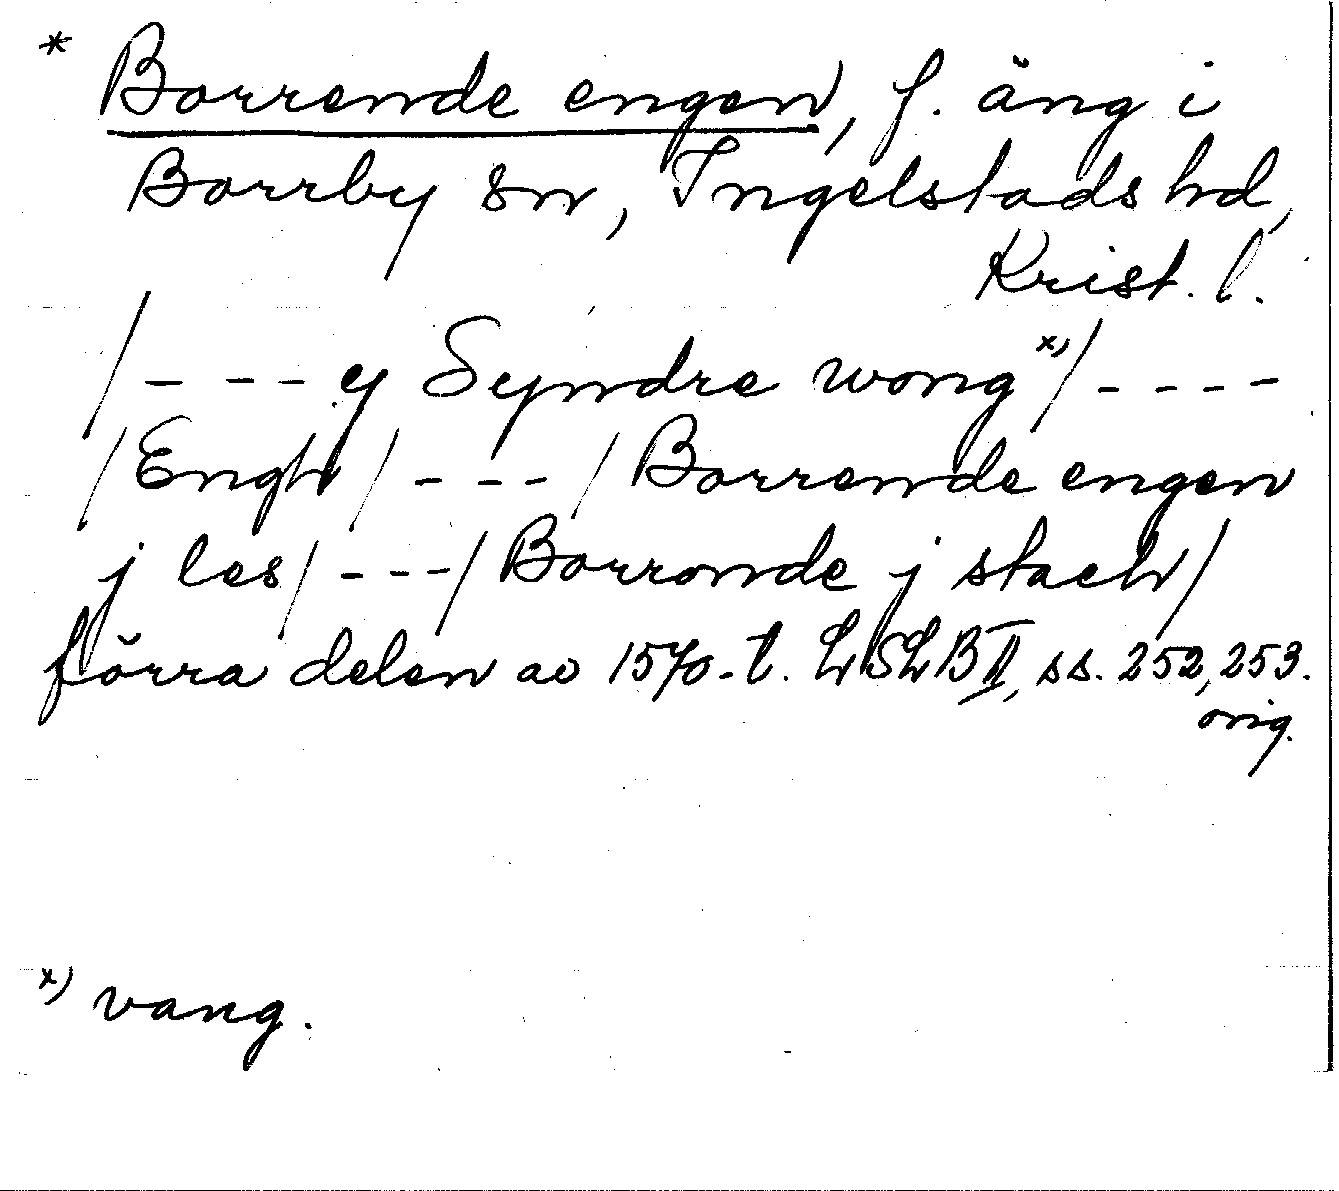 * Borrende engen, f. äng i
Borrby sn, Ingelstads hd,
Krist. l.
/- - - - y Syndre wong x)/- - - -
/Engh/- - -/Borrende engen
j les/- - -/Borronde j stach/
förra delen av 1570-t. LSLB II, ss. 252, 253.
orig.
x) vang.